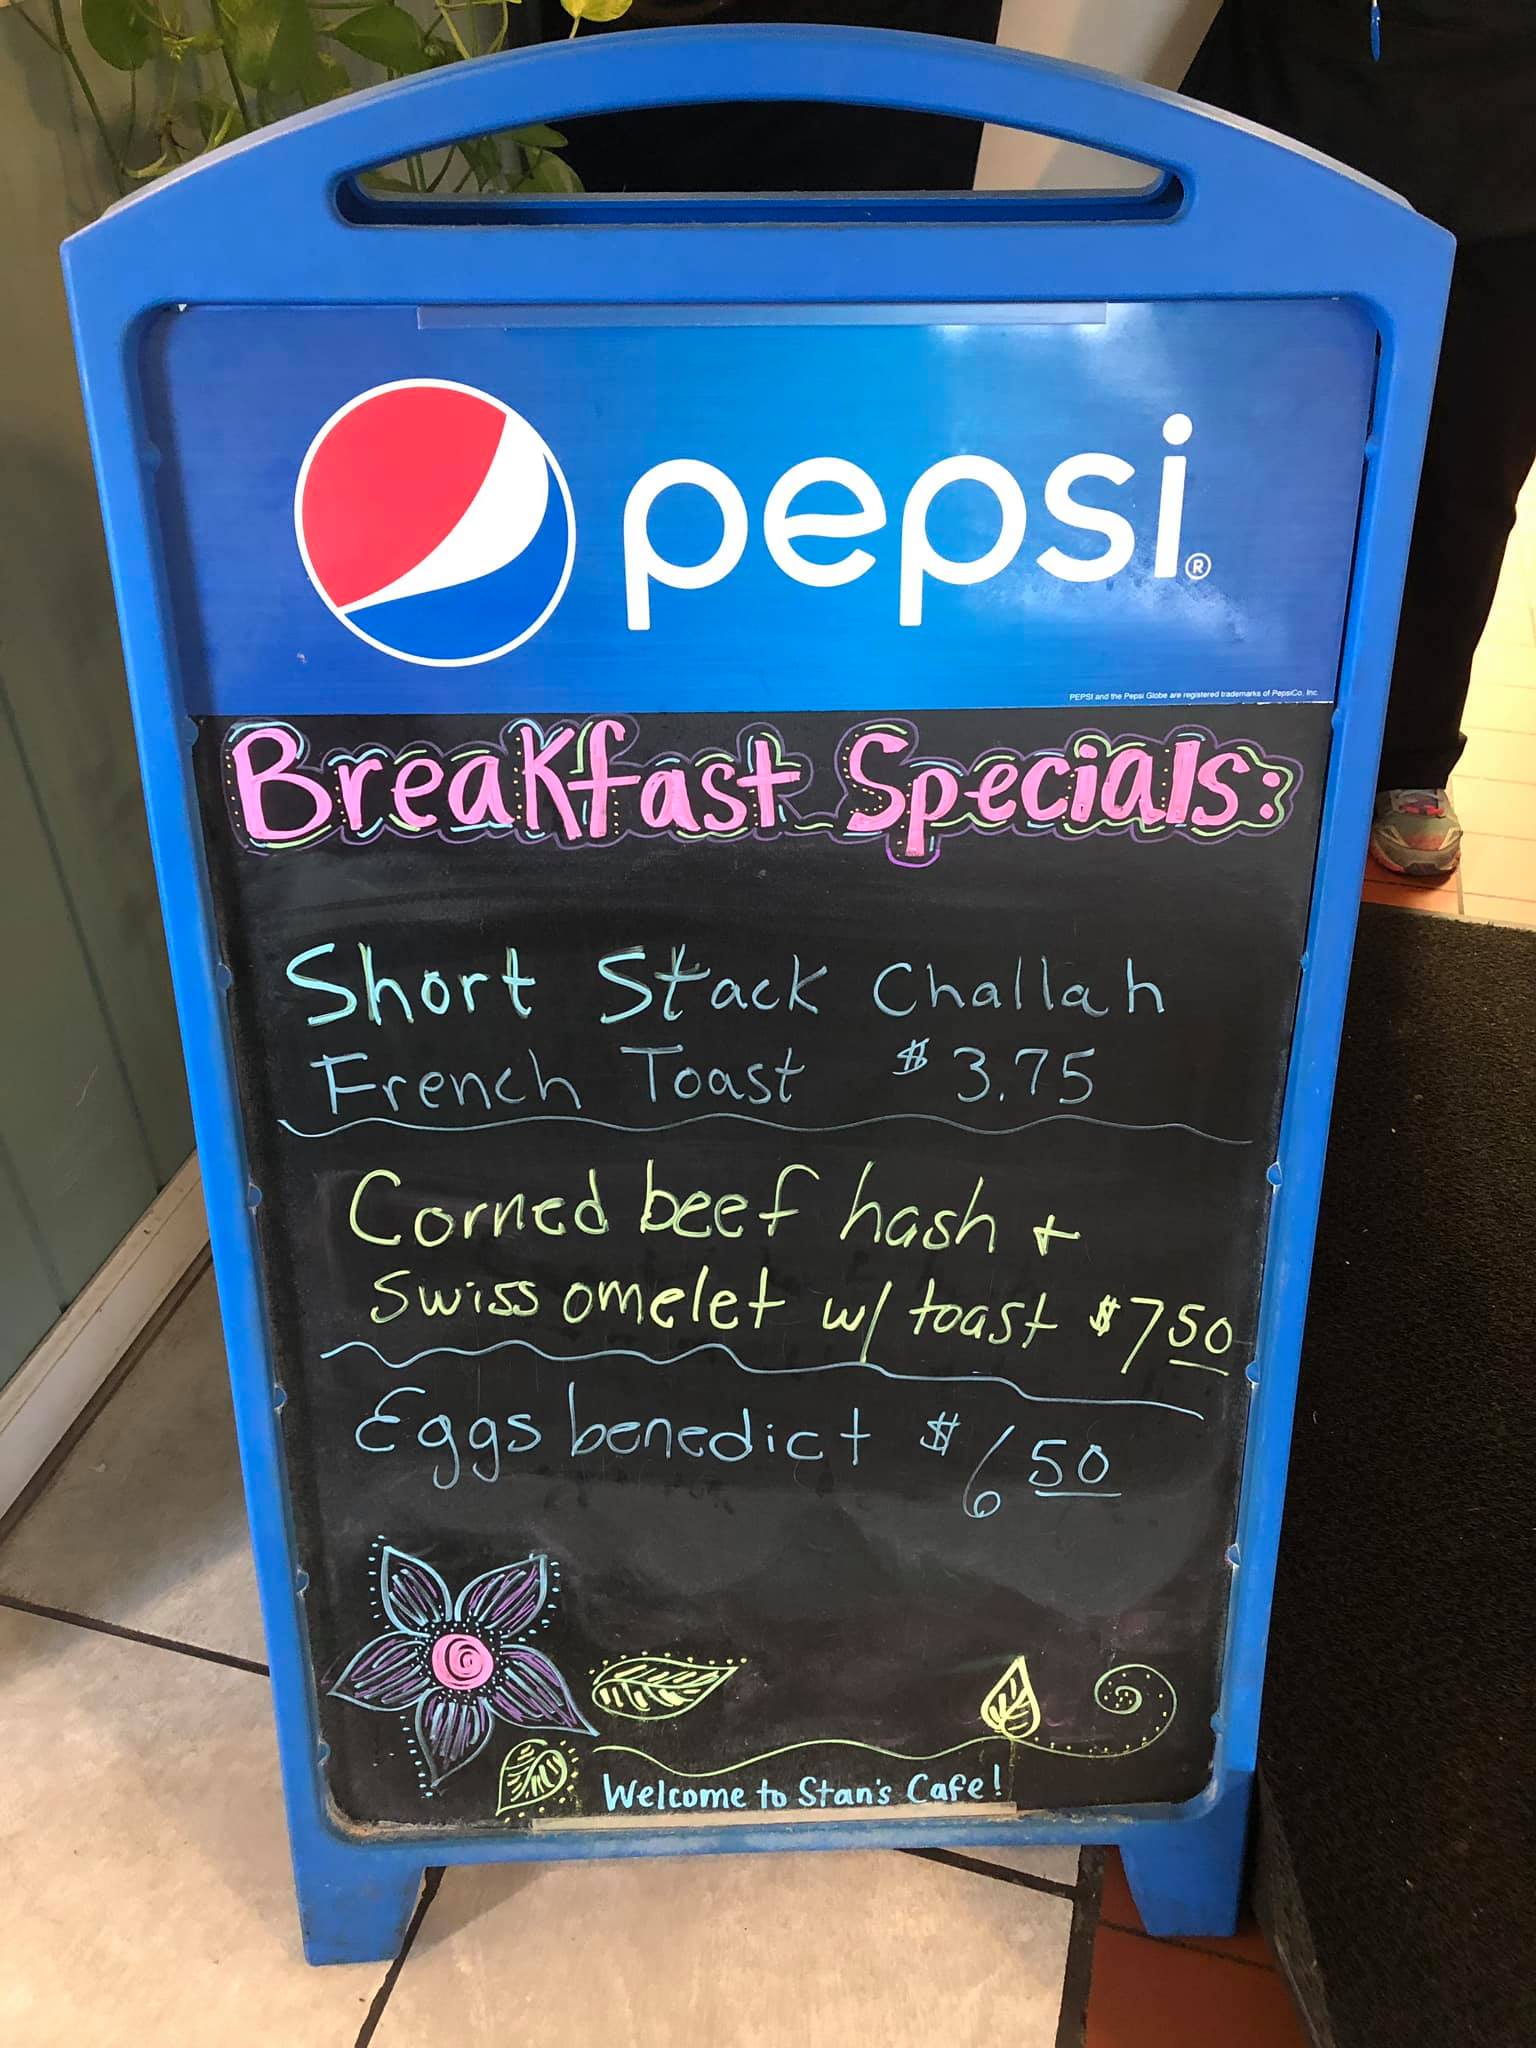 pepsi®
PEPSI and the Pepsi Globe are registered trademarks of PepsiCo, Inc.
Breakfast Specials:
Short Stack Challah
French Toast $3.75
Corned beef hash +
Swiss omelet w/ toast $7 50
Eggs benedict $6 50
Welcome to Stan's Cafe!